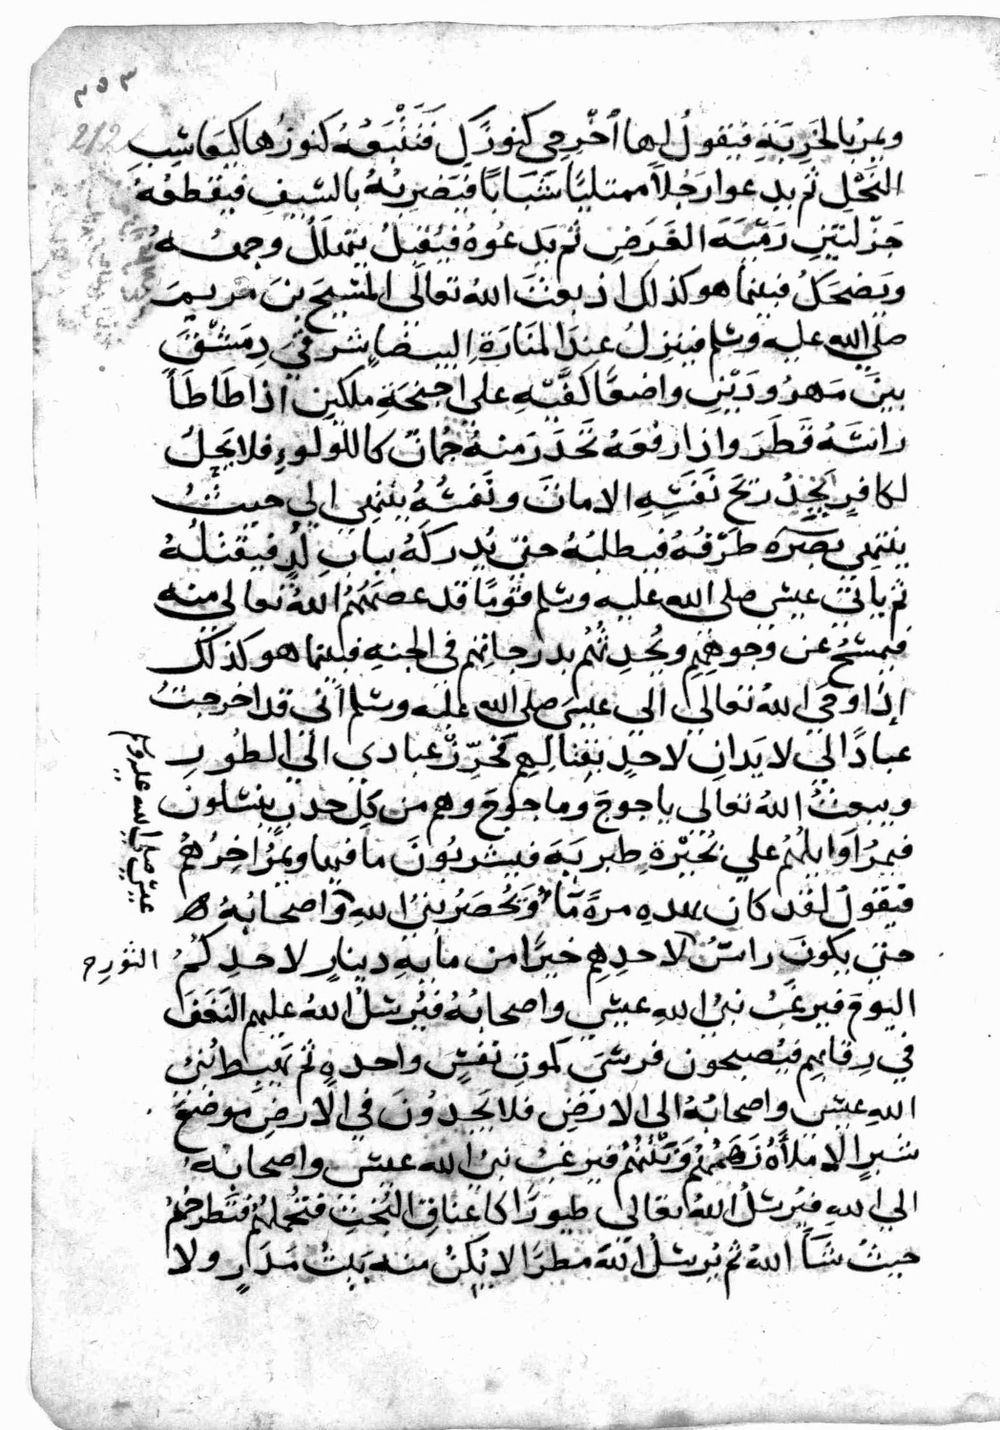 ٣٥٣
212
ويمر بالخَرِبَةِ فيقولُ لها أَخْرِجي كنوزَكِ فَتَتْبَعُهُ كنوزُها كيعاسِيبِ
النَّحْلِ ثم يدعوا رَجُلاً ممتليًا شَبَابًا فيَضرِبُهُ بالسَّيفِ فيقطعُهُ
جَزْلَتَيْنِ رَمْيَةَ الغَرَضِ ثم يَدعُوهُ فيُقبِلُ يتهلَّلُ وجهُه
ويَضحَكُ فبينما هو كذلك اذ بعثَ اللهُ تعالَى المسِيحَ بنَ مريمَ
صلى الله عليه وسلم فينزِلُ عندَ المَنَارَةِ البيضاءِ شرقيَّ دِمَشْقَ
بينَ مَهرُودَتَيْنِ واضعًا كفَّيهِ على اجنحَةِ ملكَينِ اذا طَاطَأ
راسَهُ قَطَرَ واذا رفعَهُ تَحَدَّرَ منهُ جُمَانٌ كاللولوءِ فلا يَحِلُّ
لكافرٍ يَجِدُ ريحَ نَفَسِهِ الا ماتَ ونَفَسُهُ ينتهي الي حيثُ
ينتهي بصره طَرْفُهُ فيطلبُهُ حتى يُدرِكَهُ ببابِ لُدٍّ فيقتلُهُ
ثم ياتي عيسى صلى الله عليه وسلم قومًا قد عصمَهُمُ اللهُ تعالى منه
فيمسَحُ عن وجوهِهِم ويُحدِثُهُم بدرجاتِهم في الجنهِ فبينما هو كذلك
إذ اوحَى اللهُ تعالى الي عيسى صلى الله عليه وسلم اني قد اخرجتُ
عبادًا لي لا يَدانِ لاحدٍ بقتالِهم فحرِّزْ عبادي الى الطُورِ
ويبعثُ اللهُ تعالى ياجوجَ وماجوجَ وهم من كلِ حدبٍ ينسِلونَ
فيمرُّ اوَايلُهُم على بُحَيْرَةِ طبريَةَ فيشربُونَ ما فيها ويمرُّ اخِرُهُم
فيقولُ لقد كان بهذِهِ مرةً ماءٌ ويُحصَرُ نبيُ اللهِ واصحابُهُ
عيسى صلى الله عليه وسلم
حتى يكونَ راسُ الثورِ لاحدِهِم خيرًا من مايةِ دينارٍ لاحدِكُمُ
اليومَ فيرغَبُ نبيُ اللهِ عيسى واصحابُهُ فيُرسلُ اللهُ عليهم النَغَفَ
في رِقابِهِم فيُصبحون فرسَى كموتِ نفسٍ واحدهٍ ثم يَهبِطُ نبيُ
اللهِ عيسى واصحابُهُ الى الارضِ فلا يَجِدُونَ في الارضِ موضعَ
شبرٍ الا ملأَهُ زَهَمُهُم ونَتْنُهُم فيرغَبُ نبيُ الله عيسى واصحابُهُ
الي اللهِ فيُرسلُ اللهُ تعالى طيورًا كاعناقِ البُخْتِ فتَحمِلُهُم فتَطرَحُهُم
حيثُ شَاءَ اللهُ ثم يُرسلُ اللهُ مطرًا لا يُكِنُّ منه بَيتُ مَدَرٍ ولا